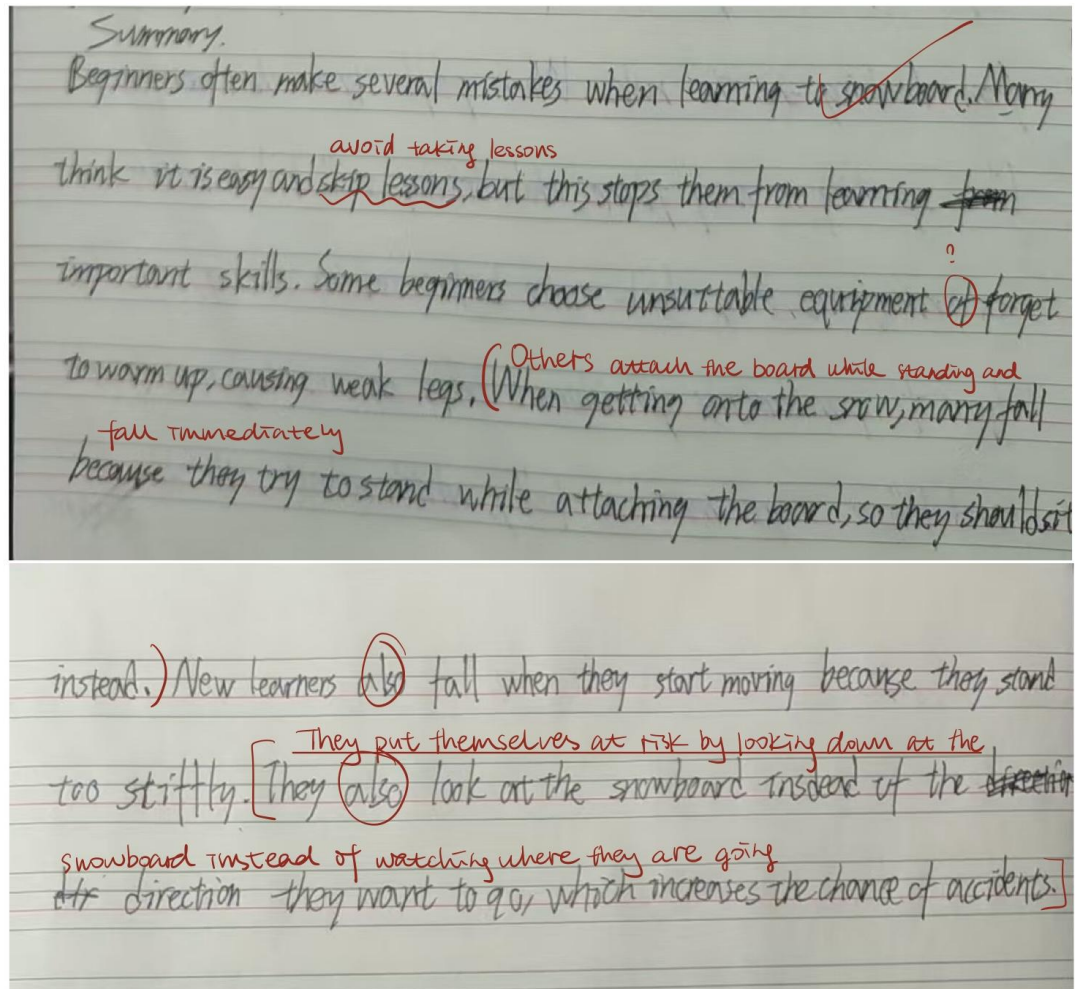 Summary.
Beginners often make several mistakes when learning to snowboard. Many
avoid taking lessons
think it is easy and skip lessons, but this stops them from learning from
?
important skills. Some beginners choose unsuttable equipment of forget
Others attach the board while standing and
to warm up, causing weak legs. (When getting onto the snow, many fall
fall immediately
because they try to stand while attaching the board, so they should sit
instead.) New learners also fall when they start moving because they stand
They put themselves at risk by looking down at the
too stiftly. [They also look at the snowboard insdead of the
snowboard instead of watching where they are going
direction they want to go, which increases the chance of accidents.]